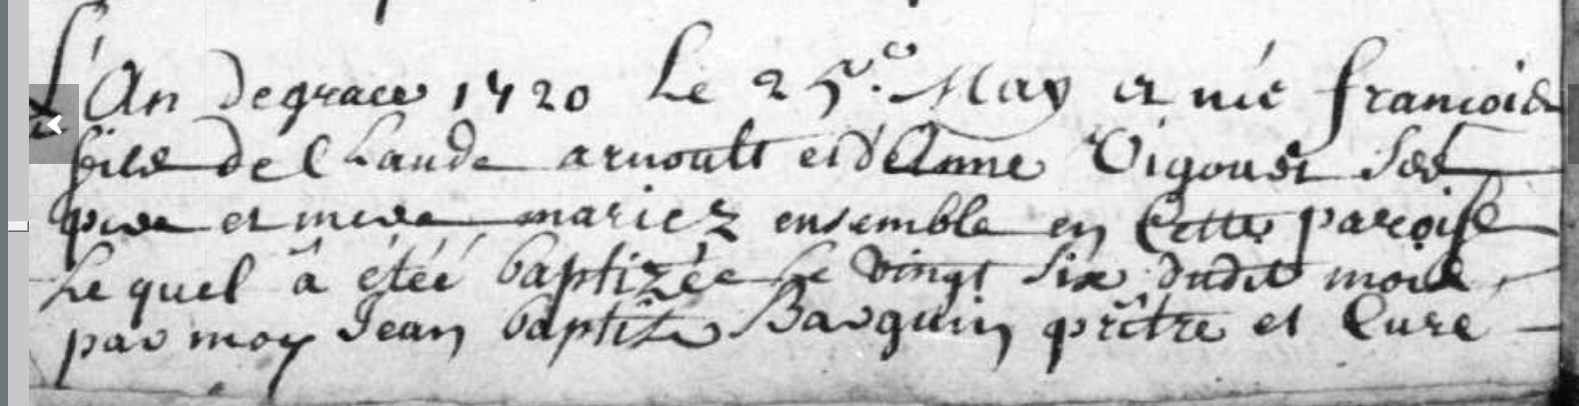 L'An de grace 1720 Le 25e. May et né francois
fils de Claude arnoult et d'Anne Vigouret Ses
pere et mere mariez ensemble en Cette paroise
Le quel â étéé baptizée Le vingt Six dudit mois
par moy Jean baptiste Barguin prêtre et Cure